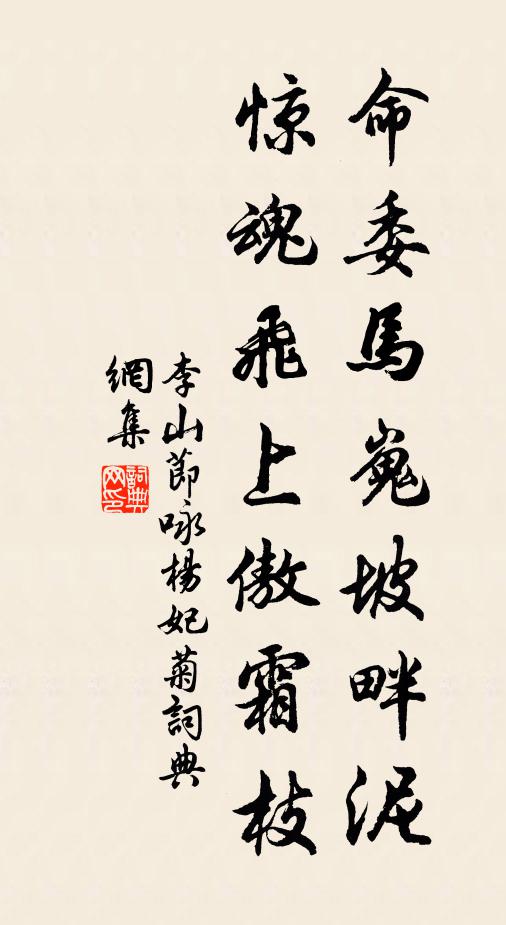 命委馬嵬坡畔泥
惊魂飛上傲霜枝
李山節咏楊妃菊詞典
網集
詞典
网印